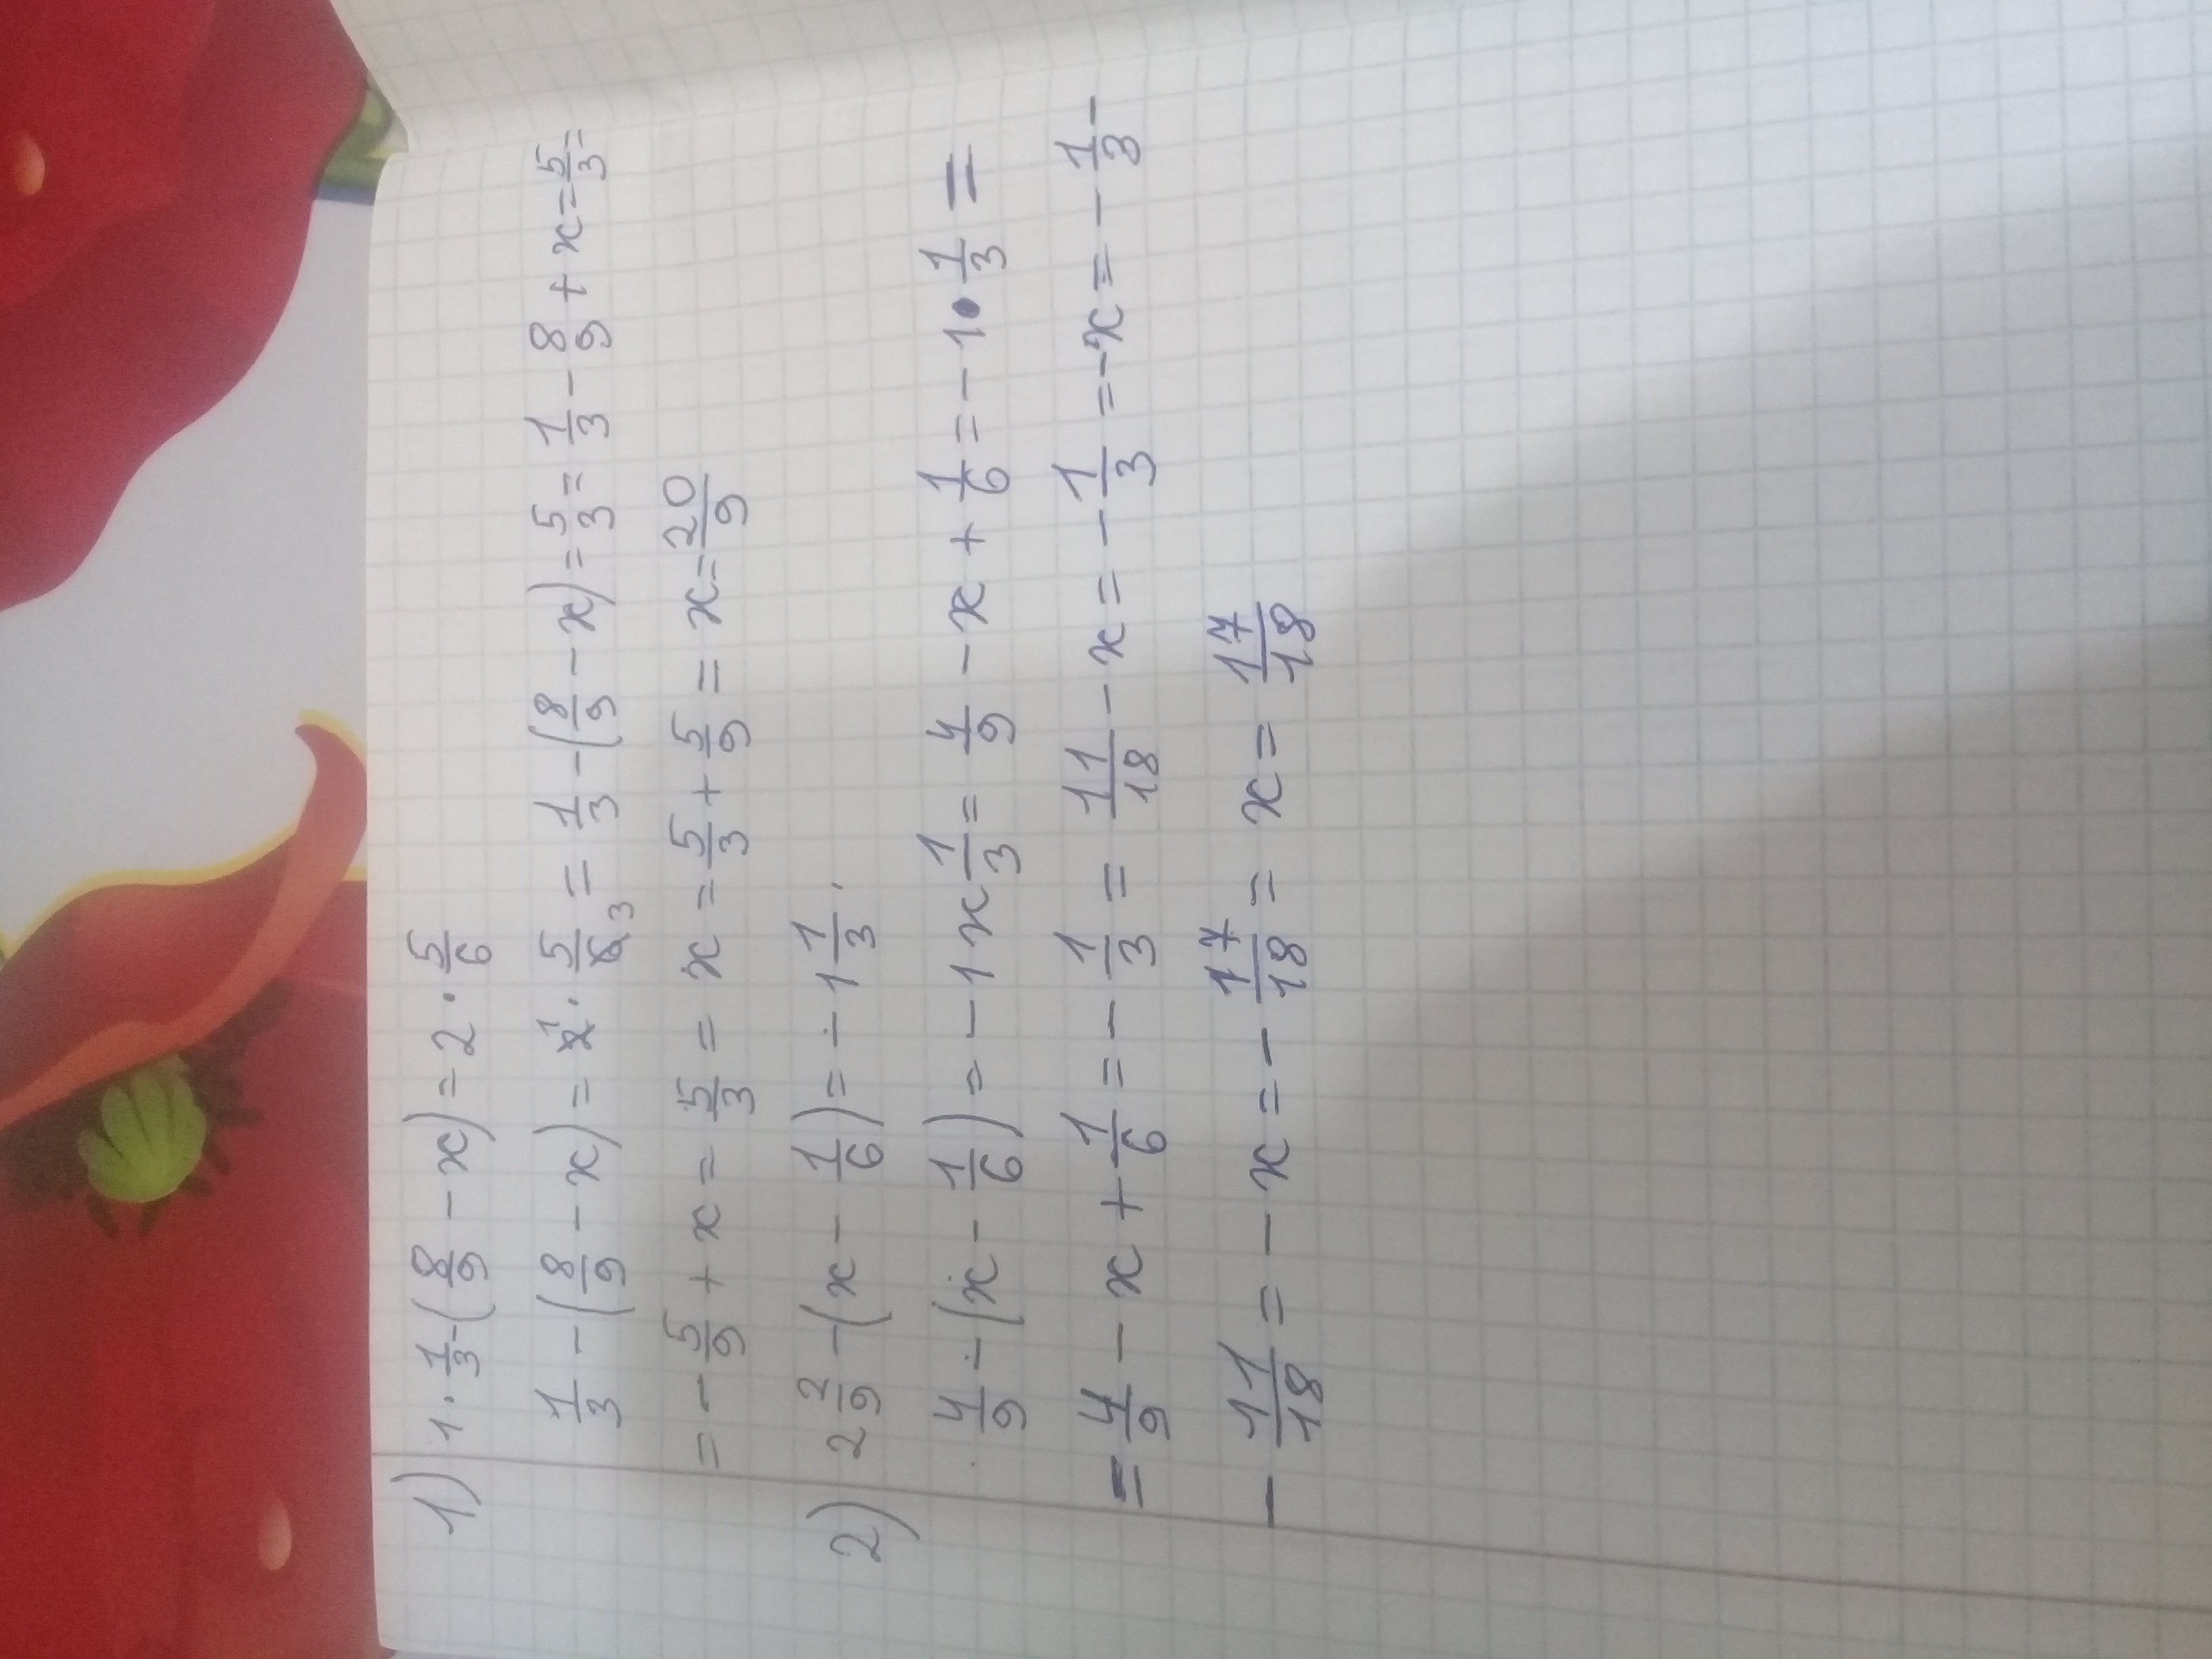 1) 1 · 1/3 - (8/9 - x) = 2 · 5/6
1/3 - (8/9 - x) = 2 1 · 5/6 3 = 1/3 - (8/9 - x) = 5/3 = 1/3 - 8/9 + x = 5/3 =
= - 5/9 + x = 5/3 = x = 5/3 + 5/9 = x = 20/9
2) 2 2/9 - (x - 1/6) = - 1 1/3 .
4/9 - (x - 1/6) = - 1 x 1/3 = 4/9 - x + 1/6 = - 1 · 1/3 =
= 4/9 - x + 1/6 = - 1/3 = 11/18 - x = - 1/3 = - x = - 1/3 -
- 11/18 = - x = - 17/18 = x = 17/18